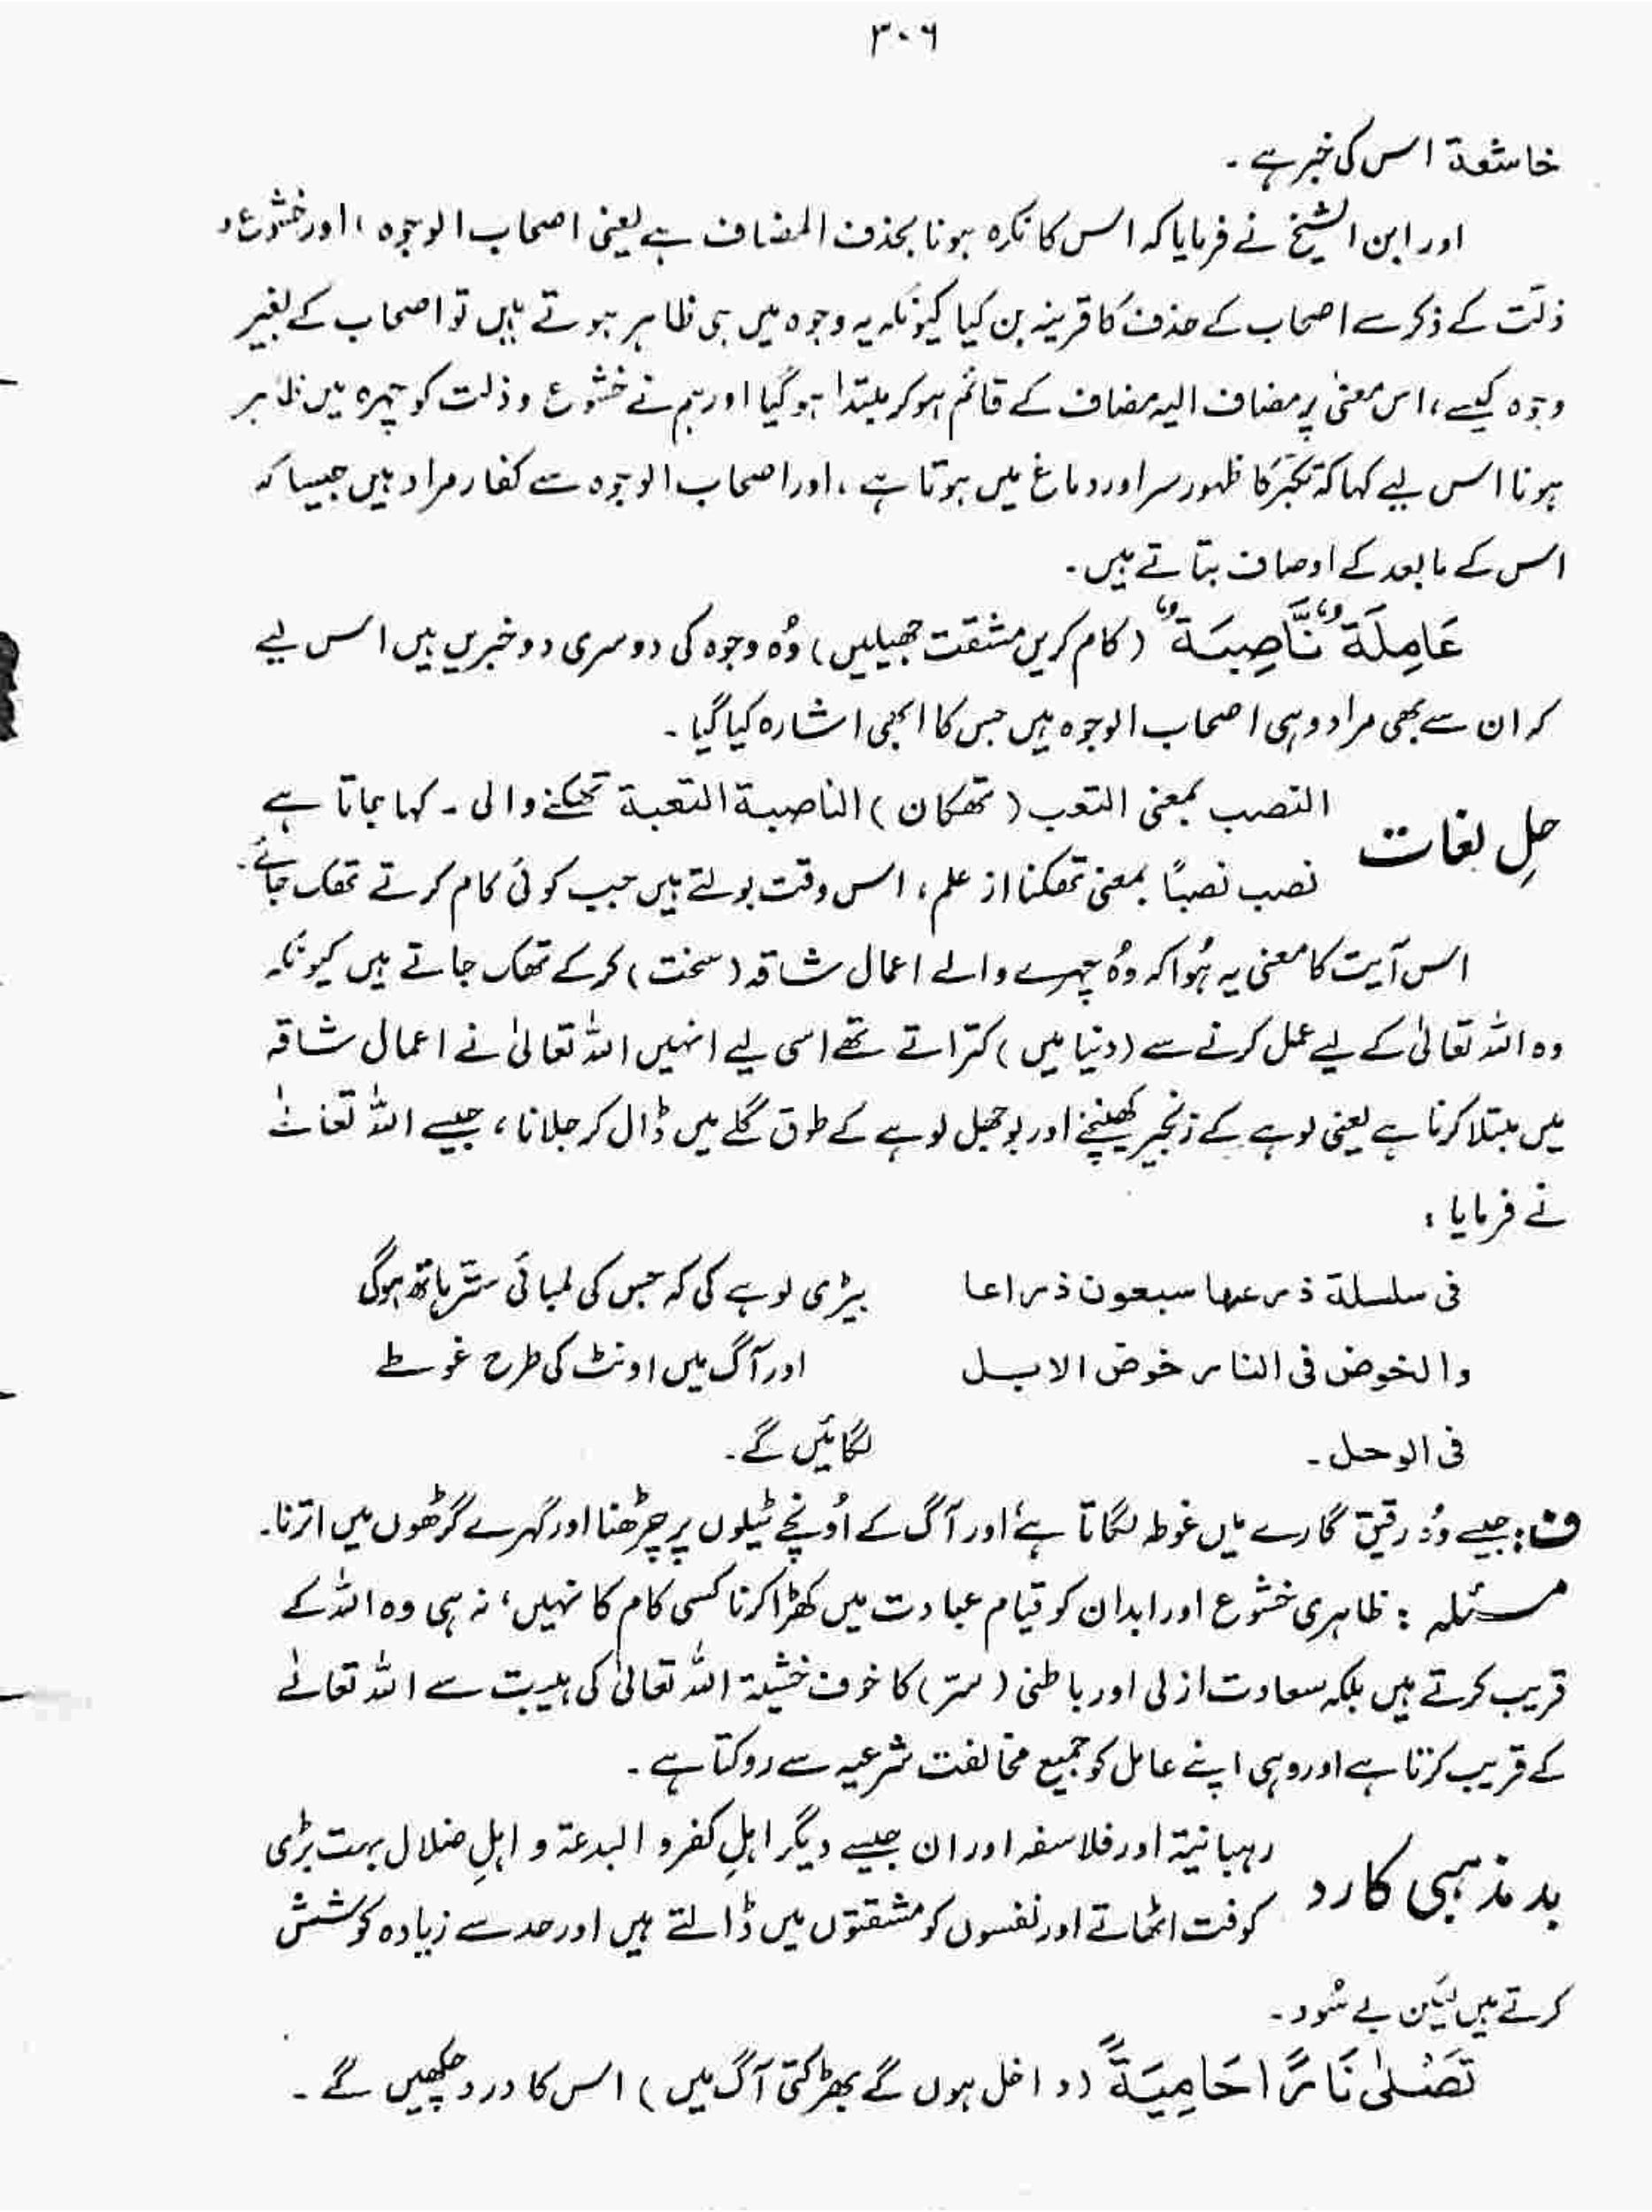 ۳۰۶
خاشعة اس کی خبر ہے ۔
اور ابن الشیخ نے فرمایا کہ اس کا نکرہ ہونا بحذف المضاف ہے یعنی اصحاب الوجوہ ، اور خشوع و
ذلّت کے ذکر سے اصحاب کے حذف کا قرینہ بن گیا کیونکہ یہ وجوہ میں ہی ظاہر ہوتے ہیں تو اصحاب کے بغیر
وجوہ کیسے ، اس معنیٰ پر مضاف الیہ مضاف کے قائم ہو کر مبتدا ہو گیا اور ہم نے خشوع و ذلت کو چہرہ میں ظاہر
ہونا اس لیے کہا کہ تکبّر کا ظہور سر اور دماغ میں ہوتا ہے ، اور اصحاب الوجوہ سے کفار مراد ہیں جیسا کہ
اس کے مابعد کے اوصاف بتاتے ہیں ۔
عَامِلَةٌ نَّاصِبَةٌ (کام کریں مشقت جھیلیں) وُہ وجوہ کی دوسری دو خبریں ہیں اس لیے
کہ ان سے بھی مراد وہی اصحاب الوجوہ ہیں جس کا ابھی اشارہ کیا گیا ۔
حلِ لغات
النصب بمعنی التعب (تھکان) الناصبة التعبة تھکنے والی ۔ کہا جاتا ہے
نصب نصبًا بمعنی تھکنا از علم ، اس وقت بولتے ہیں جب کوئی کام کرتے تھک جائے ۔
اس آیت کا معنی یہ ہُوا کہ وُہ چہرے والے اعمال شاقہ (سخت) کر کے تھک جاتے ہیں کیونکہ
وہ اللہ تعالیٰ کے لیے عمل کرنے سے (دنیا میں) کتراتے تھے اسی لیے انہیں اللہ تعالیٰ نے اعمال شاقہ
میں مبتلا کرنا ہے یعنی لوہے کے زنجیر کھینچنے اور بوجھل لوہے کے طوق گلے میں ڈال کر جلانا ، جیسے اللہ تعالیٰ
نے فرمایا :
فی سلسلة ذرعها سبعون ذراعا بیڑی لوہے کی کہ جس کی لمبائی ستّر ہاتھ ہوگی
والخوض فی النار خوض الابل اور آگ میں اونٹ کی طرح غوطے
فی الوحل ۔ لگائیں گے ۔
ف : جیسے وُہ رقیق گارے میں غوطہ لگاتا ہے اور آگ کے اُونچے ٹیلوں پر چڑھنا اور گہرے گڑھوں میں اترنا ۔
مسئلہ : ظاہری خشوع اور ابدان کو قیام عبادت میں کھڑا کرنا کسی کام کا نہیں ، نہ ہی وہ اللہ کے
قریب کرتے ہیں بلکہ سعادت ازلی اور باطنی (سرّ) کا خوف خشیة اللہ تعالیٰ کی ہیبت سے اللہ تعالےٰ
کے قریب کرتا ہے اور وہی اپنے عامل کو جمیع مخالفت شرعیہ سے روکتا ہے ۔
بد مذہبی کا رد
رہبانیة اور فلاسفہ اور ان جیسے دیگر اہلِ کفر و البدعة و اہلِ ضلال بہت بڑی
کوفت اٹھاتے اور نفسوں کو مشقتوں میں ڈالتے ہیں اور حد سے زیادہ کوشش
کرتے ہیں لیکن بے سُود ۔
تَصْلٰی نَارًا حَامِیَةً (داخل ہوں گے بھڑکتی آگ میں) اس کا درد چکھیں گے ۔